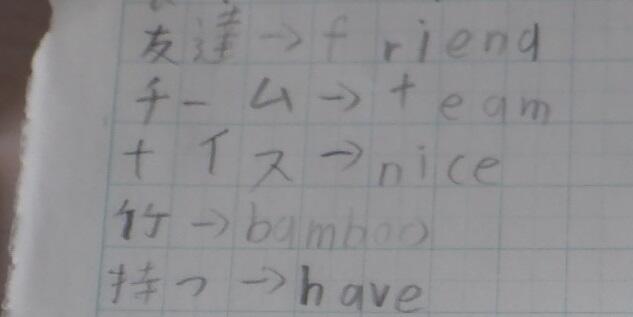 友達→friend
チーム→team
ナイス→nice
竹→bamboo
持つ→have